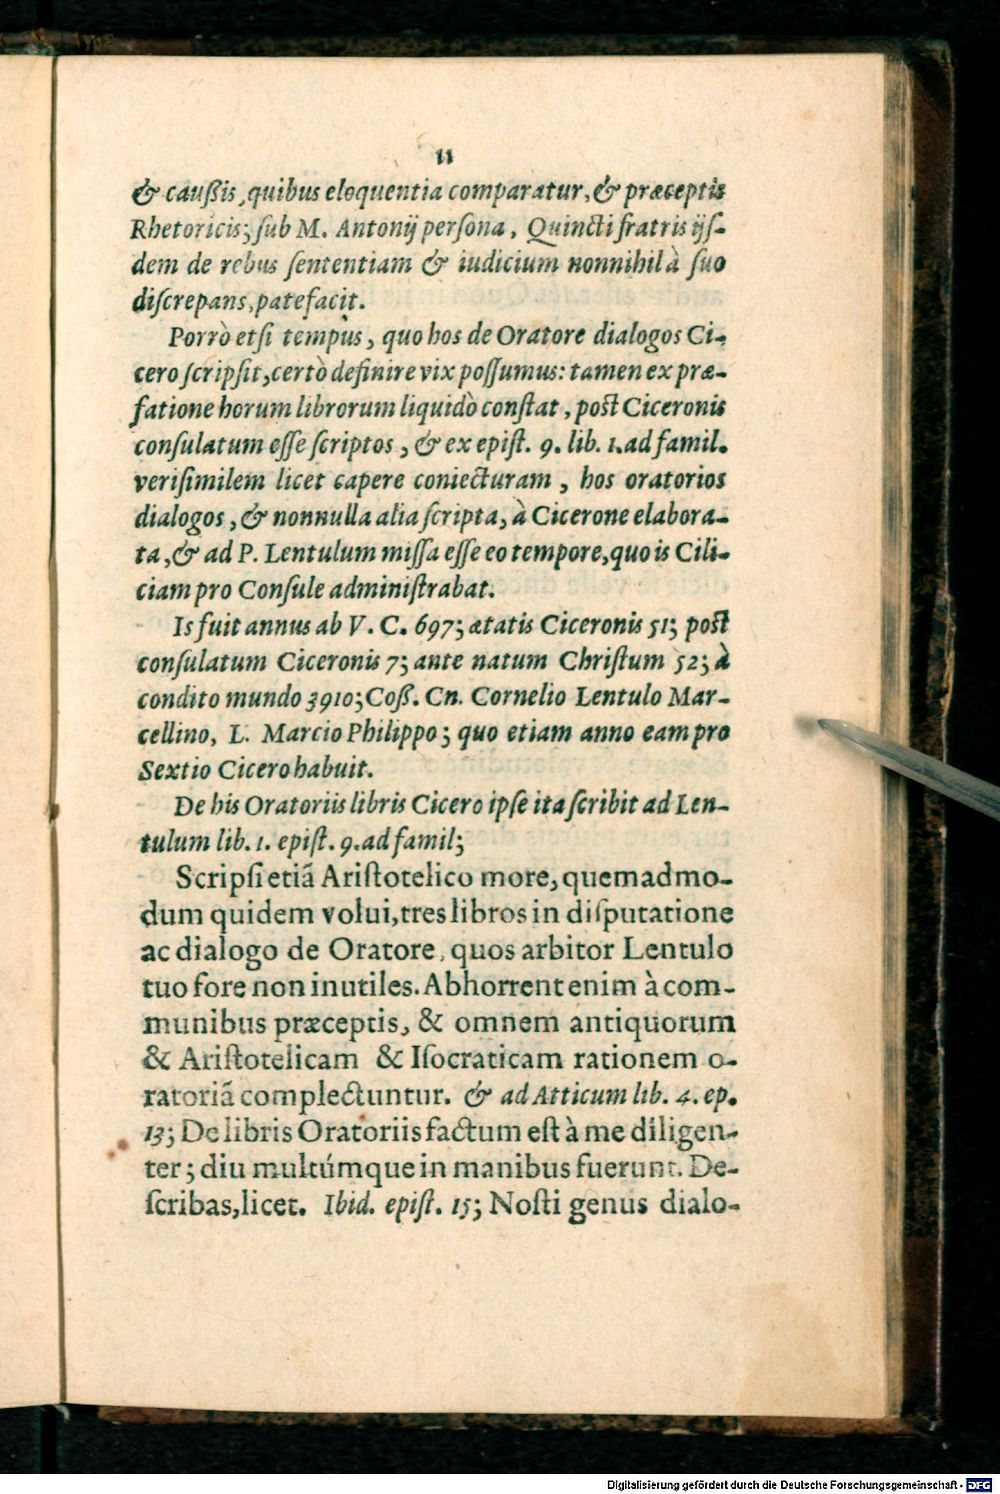 11
& caußis, quibus eloquentia comparatur, & præceptis
Rhetoricis; ſub M. Antonij perſona, Quincti fratris ijſ-
dem de rebus ſententiam & iudicium nonnihil à ſuo
diſcrepans, patefacit.
Porrò etſi tempus, quo hos de Oratore dialogos Ci-
cero ſcripſit, certò definire vix poſſumus: tamen ex præ-
fatione horum librorum liquidò conſtat, poſt Ciceronis
conſulatum eſſe ſcriptos, & ex epiſt. 9. lib. 1. ad famil.
veriſimilem licet capere coniecturam, hos oratorios
dialogos, & nonnulla alia ſcripta, à Cicerone elabora-
ta, & ad P. Lentulum miſſa eſſe eo tempore, quo is Cili-
ciam pro Conſule adminiſtrabat.
Is fuit annus ab V. C. 697; ætatis Ciceronis 51; poſt
conſulatum Ciceronis 7; ante natum Chriſtum 52; à
condito mundo 3910; Coß. Cn. Cornelio Lentulo Mar-
cellino, L. Marcio Philippo; quo etiam anno eam pro
Sextio Cicero habuit.
De his Oratoriis libris Cicero ipſe ita ſcribit ad Len-
tulum lib. 1. epiſt. 9. ad famil;
Scripſi etiã Ariſtotelico more, quemadmo-
dum quidem volui, tres libros in diſputatione
ac dialogo de Oratore, quos arbitor Lentulo
tuo fore non inutiles. Abhorrent enim à com-
munibus præceptis, & omnem antiquorum
& Ariſtotelicam & Iſocraticam rationem o-
ratoriã complectuntur. & ad Atticum lib. 4. ep.
13; De libris Oratoriis factum eſt à me diligen-
ter; diu multúmque in manibus fuerunt. De-
ſcribas, licet. Ibid. epiſt. 15; Noſti genus dialo-
Digitalisierung gefördert durch die Deutsche Forschungsgemeinschaft - DFG